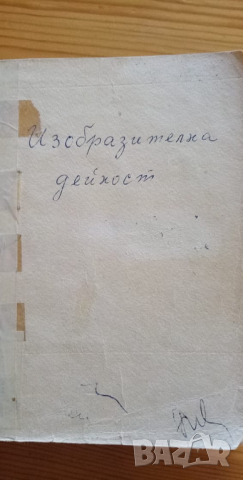 Изобразителна
дейност
BAZAR